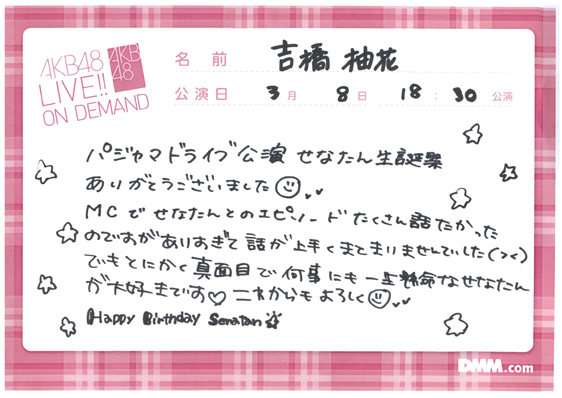 AKB48
LIVE!!
ON DEMAND
AKB
48
名前 吉橋 柚花
公演日 3月 8日 18:30 公演
パジャマドライブ公演 せなたん生誕祭
ありがとうございました
MCで せなたんとのエピソード たくさん話したかった
のですがありすぎて 話が上手くまとまりませんでした(つ<)
でもとにかく真面目で何事にも一生懸命なせなたん
が大好きです♡ これからもよろしく
Happy Birthday Senatan
DMM.com